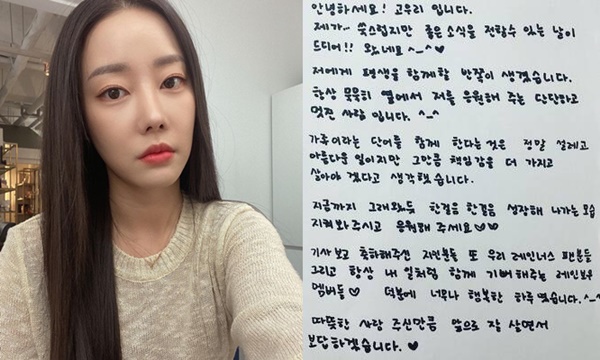 안녕하세요! 고우리 입니다.
제가... 쑥스럽지만 좋은 소식을 전할수 있는 날이
드디어!! 왔네요 ^_^♥
저에게 평생을 함께할 반쪽이 생겼습니다.
항상 묵묵히 옆에서 저를 응원해 주는 단단하고
멋진 사람 입니다. ^_^
가족이라는 단어를 함께 한다는것은 정말 설레고
아름다운 일이지만 그만큼 책임감을 더 가지고
살아야 겠다고 생각했습니다.
지금까지 그래왔듯 한걸음 한걸음 성장해 나가는 모습
지켜봐주시고 응원해 주세요♡♡
기사보고 축하해주신 지인분들 또 우리 레인너스 팬분들
그리고 항상 내 일처럼 함께 기뻐해주는 레인보우
멤버들♡ 덕분에 너무나 행복한 하루 였습니다. ^_^
따뜻한 사랑 주신만큼 앞으로 잘 살면서
보답하겠습니다. ♥